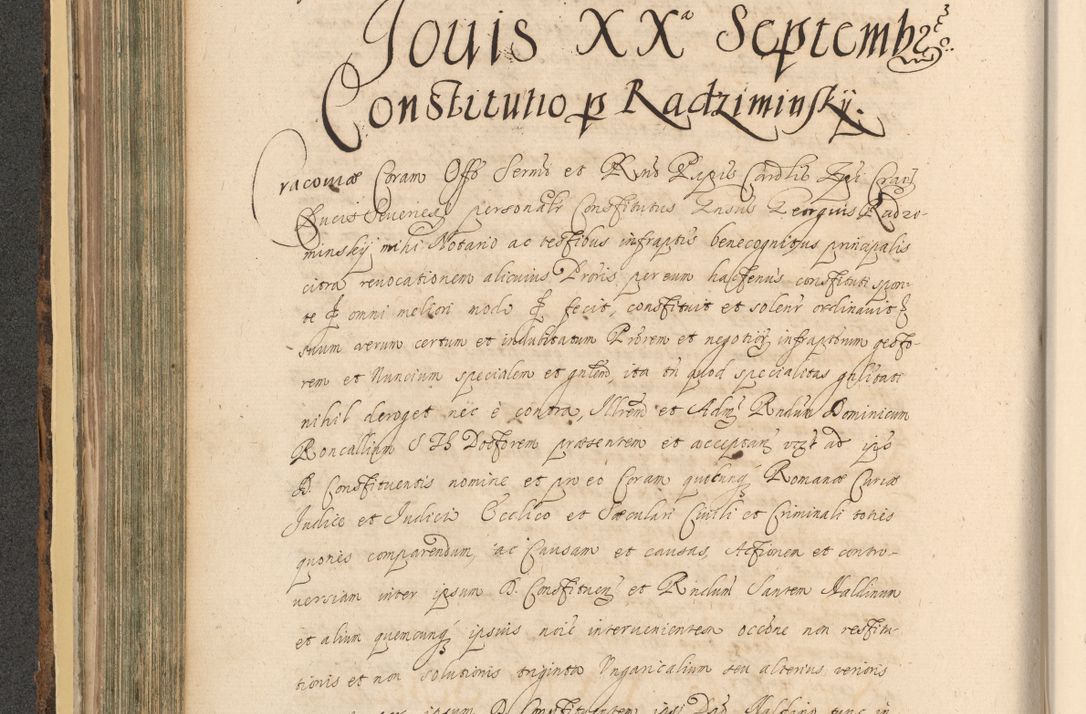 Jouis XXa Septembr
Constitutio p Radziminskÿ.
Cracoviæ Coram Offo Sermi et Rndi Pnpis Cardlis Epi Cracu
Ducis Severien personalr Constitutus Gnsus Georgius Radzi-
minskÿ mihi Notario ac testibus infraptis benecognitus principalis
citra revocationem alicuius Proris per eum hactenus constituti spon-
te et omni meliori modo etc fecit, constituit et solenr ordinavit
suum verum certum et indubitatum Prorem et negotioru infraptorum gesto-
rem et Nuncium specialem et gnlem, ita tn quod specialitas gnlitati
nihil deroget nec è contra, Illrem et Admu Rndum Dominicum
Roncallium S Th Doctorem præsentem et acceptan vizt ad ipsi
D. Constituentis nomine et pro eo Coram quibuncq Romanæ Curiæ
Judice et Judicio Ecclico et Sæculari Civili et Criminali toties
quoties comparendum, ac Causam et causas, Actionem et contro-
versiam inter ipsum D. Constituen et Rndum Santem Naldinum
et alium quemcunq ipsius noie intervenientem occone non restitu-
tionis et non solutionis triginta Ungaricalium seu alterius verioris
ipsum D. Constituentem ipsi Dno Naldino tunc in